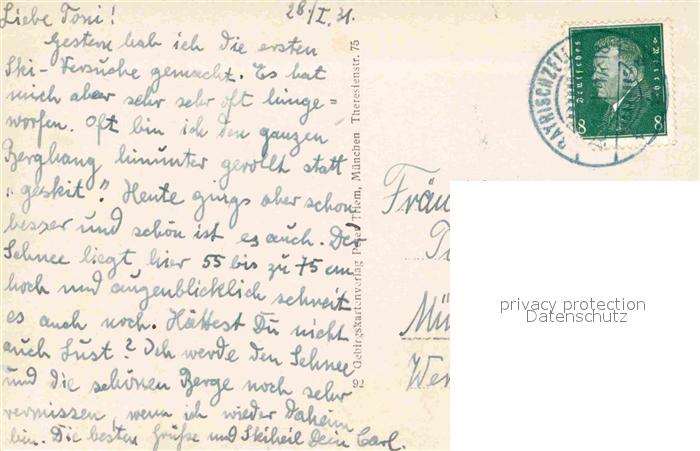 Liebe Toni! 28./I. 31.
Gestern hab ich die ersten
Ski-Versuche gemacht. Es hat
mich aber sehr sehr oft hinge=
worfen. Oft bin ich den ganzen
Berghang hinunter gerollt statt
"geskit". Heute gings aber schon
besser und schön ist es auch. Der
Schnee liegt hier 55 bis zu 75 cm
hoch und augenblicklich schneit
es auch noch. Hättest Du nicht
auch Lust? Ich werde den Schnee
und die schönen Berge noch sehr
vermissen, wenn ich wieder daheim
bin. Die besten Grüße und Skiheil Dein Carl.
92 Gebirgskartenverlag Peter Triem, München Theresienstr. 75
BAYRISCHZELL
Deutsches Reich
8 8
Fräu
Mü
privacy protection
Datenschutz